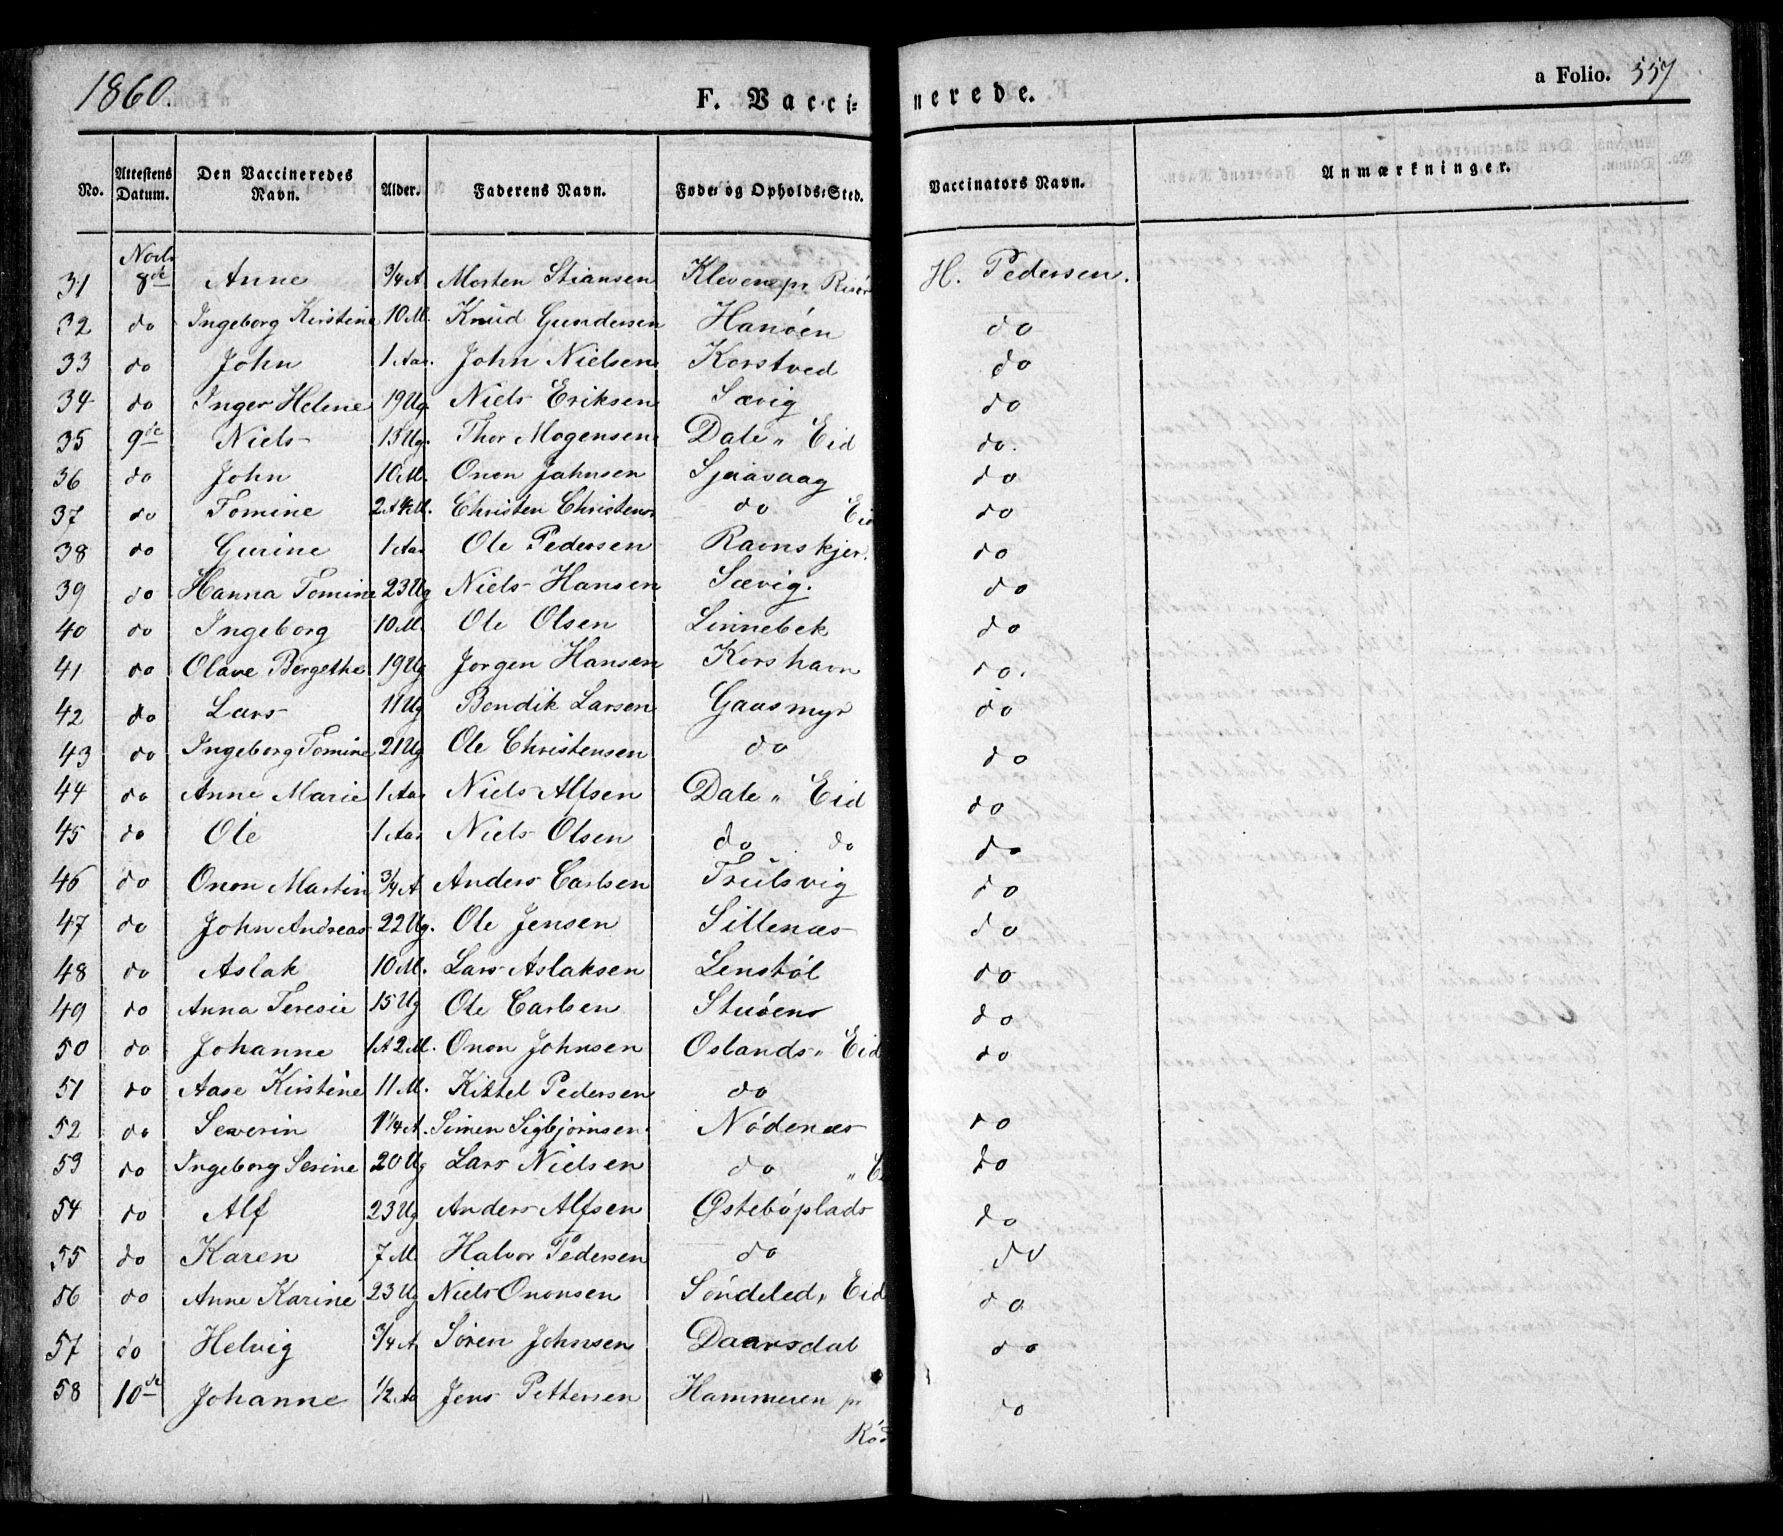 1860. F. Vaccinerede. a Folio. 557
No. Attestens Datum. Den Vaccineredes Navn. Alder. Faderens Navn. Føde og Opholds-Sted. Vaccinators Navn. Anmærkninger.
31 8de Anne 3/4 A Morten Stiansen Kleven pr Risør H. Pedersen.
32 do Ingeborg Kirstine 10 M. Knud Gundersen Hanöen do
33 do John 1 Aar. John Nielsen Korstved do
34 do Inger Helene 19 Ug Niels Eriksen Sævig do
35 9de Niels 13 Ug. Thor Mogensen Dale " Eid do.
36 do John 10 M. Onon Jahnsen Sjaavaag do
37 do Tomine Christen Christens do Eid do
38 do Gurine 1 Aar Ole Pedersen Ravnskjer. do
39 do Hanna Tomine 23 Ug Niels Hansen Sævig. do
40 do Ingeborg 10 M. Ole Olsen Linnebek do
41 do Olave Bergethe 19 Ug Jorgen Hansen Korshavn do.
42 do Lars 11 Ug Bendik Larsen Gaasmyr do
43 do Ingeborg Tomine 21 Ug Ole Christensen do do
44 do Anne Marie 1 Aar Niels Alfsen Dale " Eid do
45 do Ole 1 Aar Niels Olsen do do do
46 do Onon Martin 3/4 A Anders Carlsen Trulsvig do
47 do John Andreas 22 Ug. Ole Jensen Sillenæs do
48 do Aslak 10 M. Lars Aslaksen Lenstöl do
49 do Anna Teresie 15 Ug Ole Carlsen Stuöens do
50 do Johanne 1 A 2 M. Onon Johnsen Oslands " Eid do
51 do Aase Kirstine 11 M. Kittel Pedersen do
52 do Severin 1 1/4 A. Simen Sigbjörnsen. Nödenæs do
53 do Ingeborg Serine 20 Ug Lars Nielsen do " E do
54 do Alf 23 Ug Anders Alfsen Østeböplads do
55 do Karen 7 M Halvor Pedersen do do
56 do Anne Karine 23 Ug Niels Ononsen Söndeled, Eid do
57 do Helvig 3/4 A Sören Johnsen Daarsdal do
58 10de Johanne 1/2 Aa Jens Pettersen Hammeren pr do